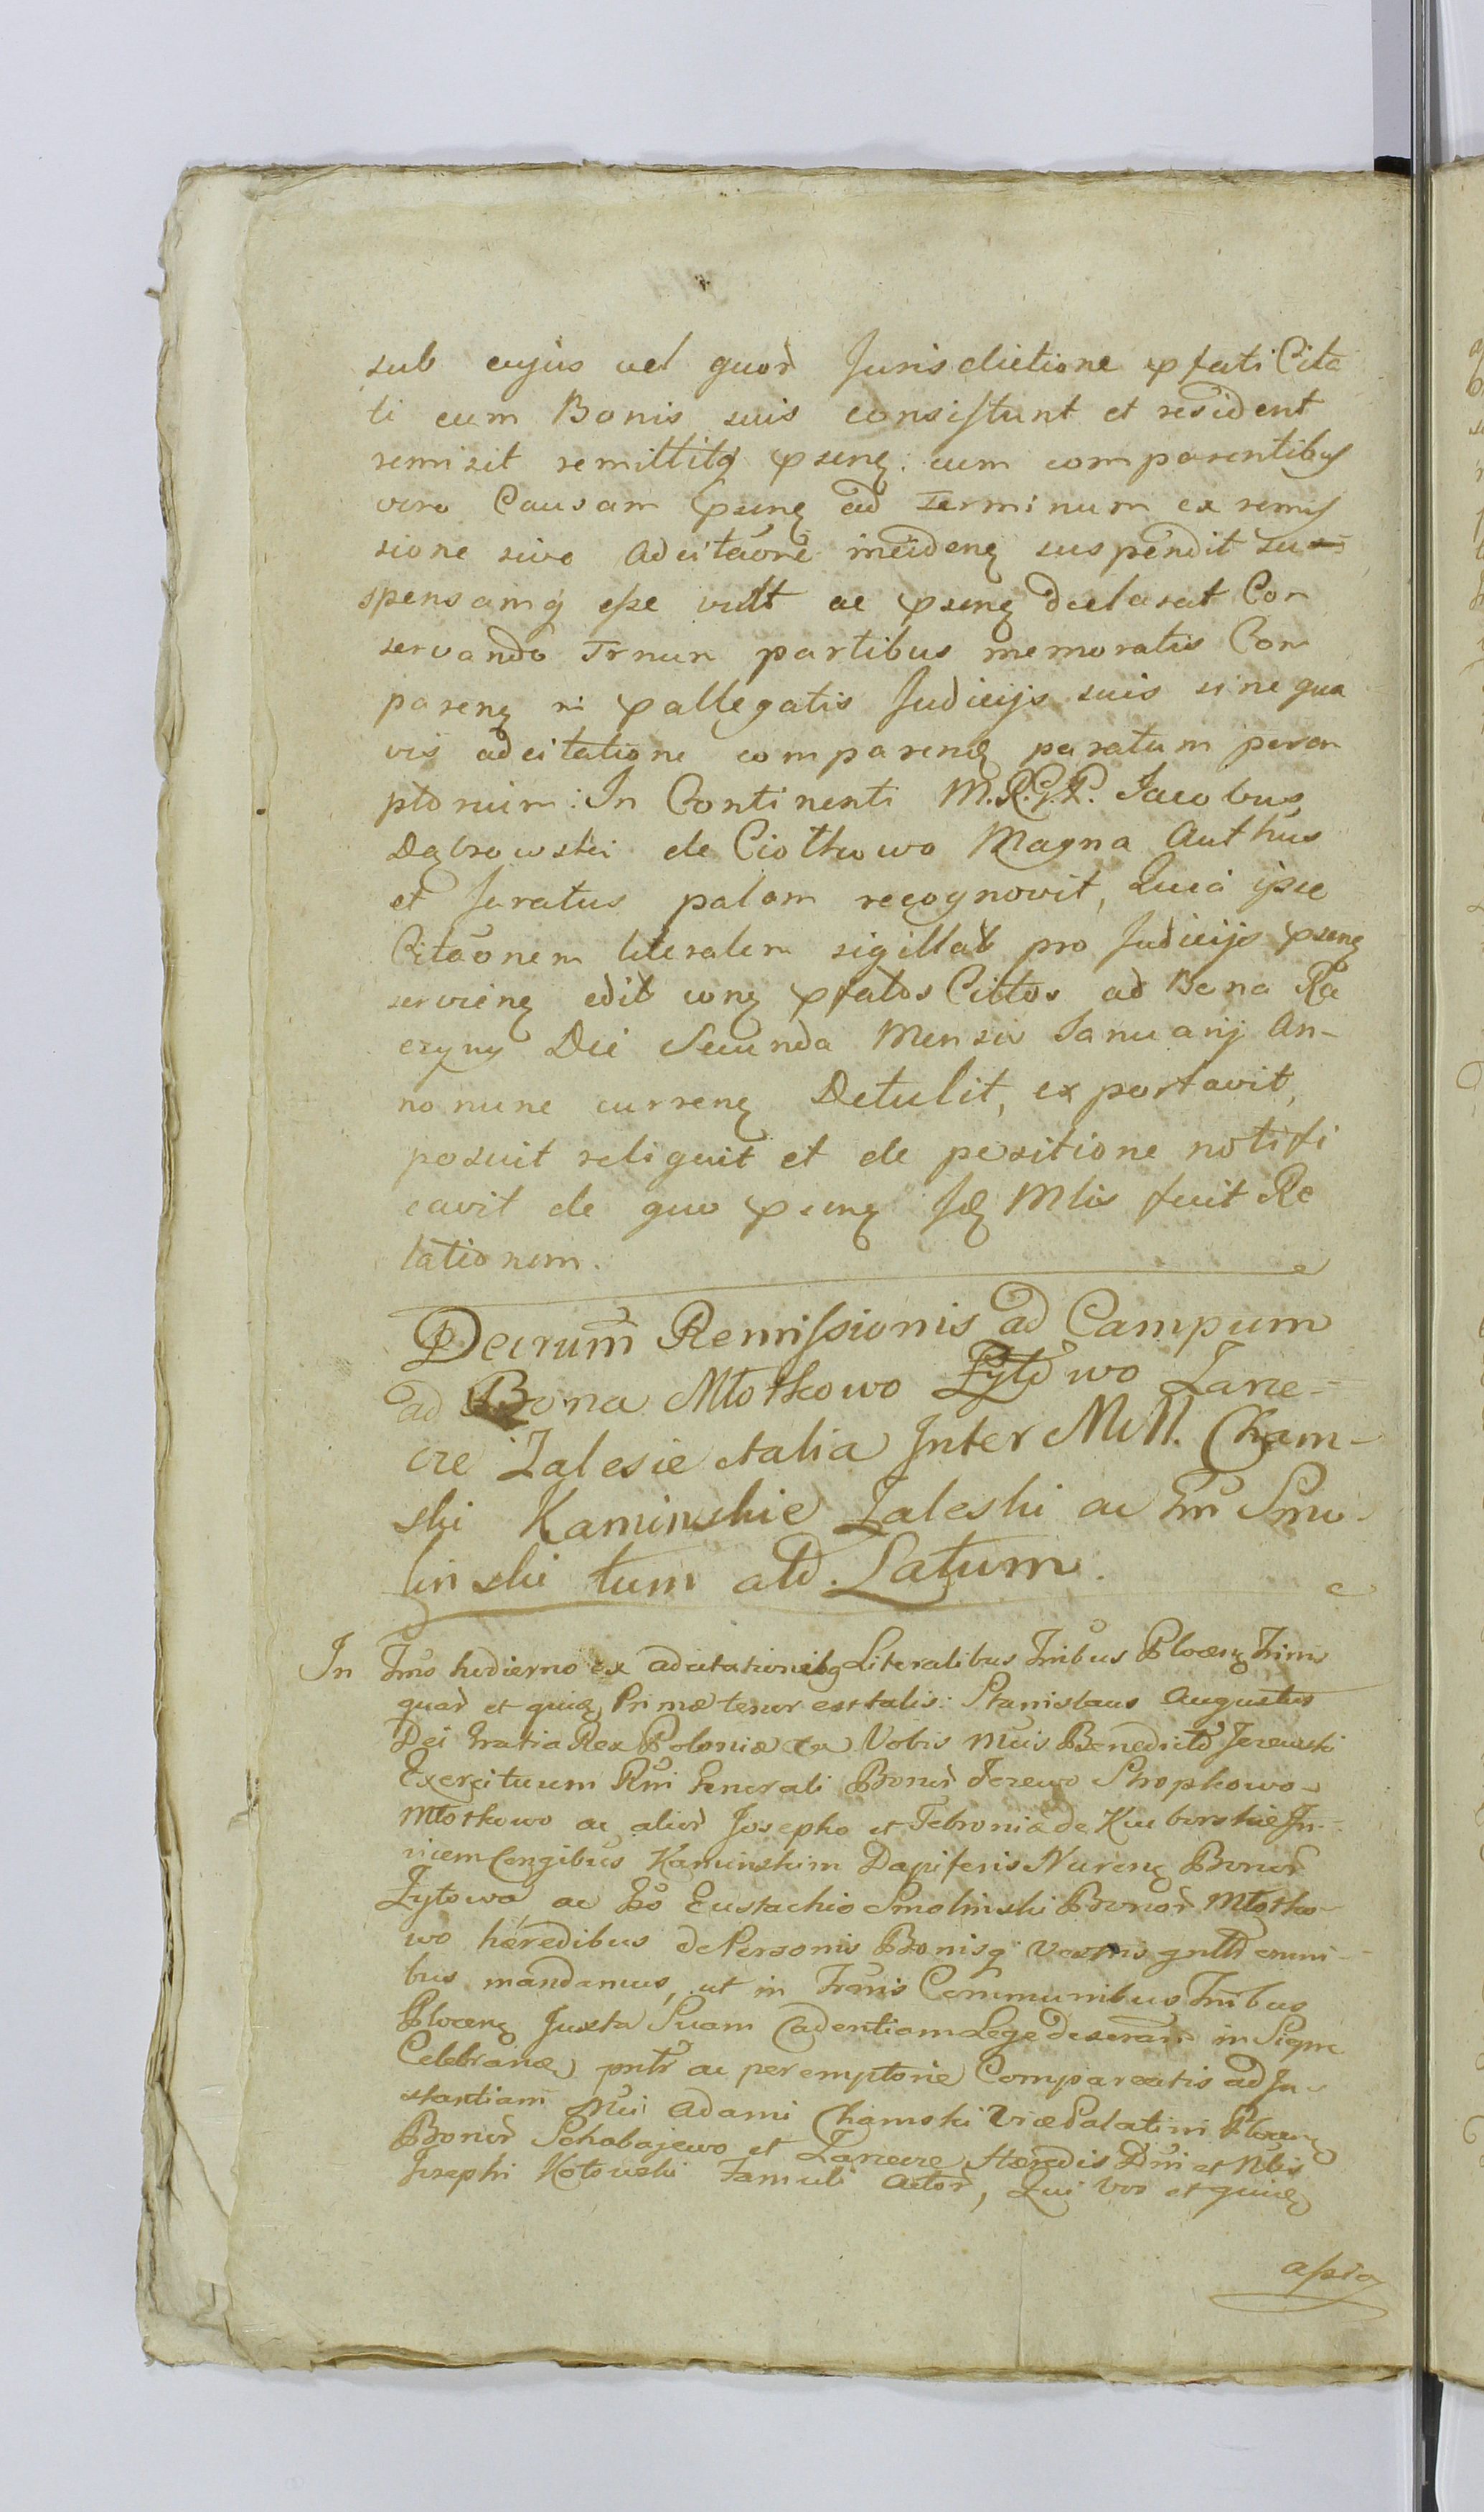 sub cujus vel quor Jurisdictione pfati Cita
ti cum Bonis suis consistunt et resident
remisit remittitq psenę cum comparentibus
vero Causam psenę ad Terminum ex remis
sione sive Adcitaone incidenę suspendit su
spensamq esse vult ac psenę declarat Con
servando Trnum partibus memoratis Com
parenę in pallegatis Judicijs suis sine qua
vis adcitatione comparendę paratum perem
ptorium: In Continenti M.R.G.P. Jacobus
Dąbrowski de Ciołkowo Magna Authus
et Juratus palam recognovit, Quia ipse
Citaonem literalem sigillat pro Judicijs psenę
servienę edit conę pfatos Cittos ad Bona Ra
czyny Die Secunda Mensis Januarij An-
no nunc currenę Detulit, exportavit,
posuit reliquit et de positione notifi
cavit de quo psenę Mlis fuit Re
lationem.
Decrum Remissionis ad Campum
ad Bona Młotkowo Żytowo Zarze-
cze Zalesie et alia Inter MM. Cham-
ski Kaminskie Zaleski ac Gm Smo-
linski tum atd. Latum.
In Tmo hodierno ex adcitationibq Literalibus Tribus Plocenę Trims
quar et quię Primæ tenor est talis: Stanislaus Augustus
Dei Gratia Rex Poloniæ Vobis Mcis Benedicto Jezewski
Exercituum Rni Generali Bonor Jezewo Stropkowo
Młotkowo ac alior Josepho et Febroniæ de Kuborskie In-
vicem Congibus Kaminskim Dapiferis Nurenę Bonor
Żytowa ac Gso Eustachio Smolinski Bonor Młotko-
wo hæredibus de Personis Bonisq Vestris gnltr omni-
bus mandamus, ut in Trmis Communibus Tribus
Plocenę Juxta Suam Cadentiam Lege deseram in Siepre
Celebranę pntr ac peremptorie Compareatis ad In-
stantiam Mci Adami Chamski VicePalatini Plocenę
Bonor Schabajewo et Zarzecze Hæredis Dni et Nblis
Josephi Kotowski Famuli Actor, Qui Vos et quię